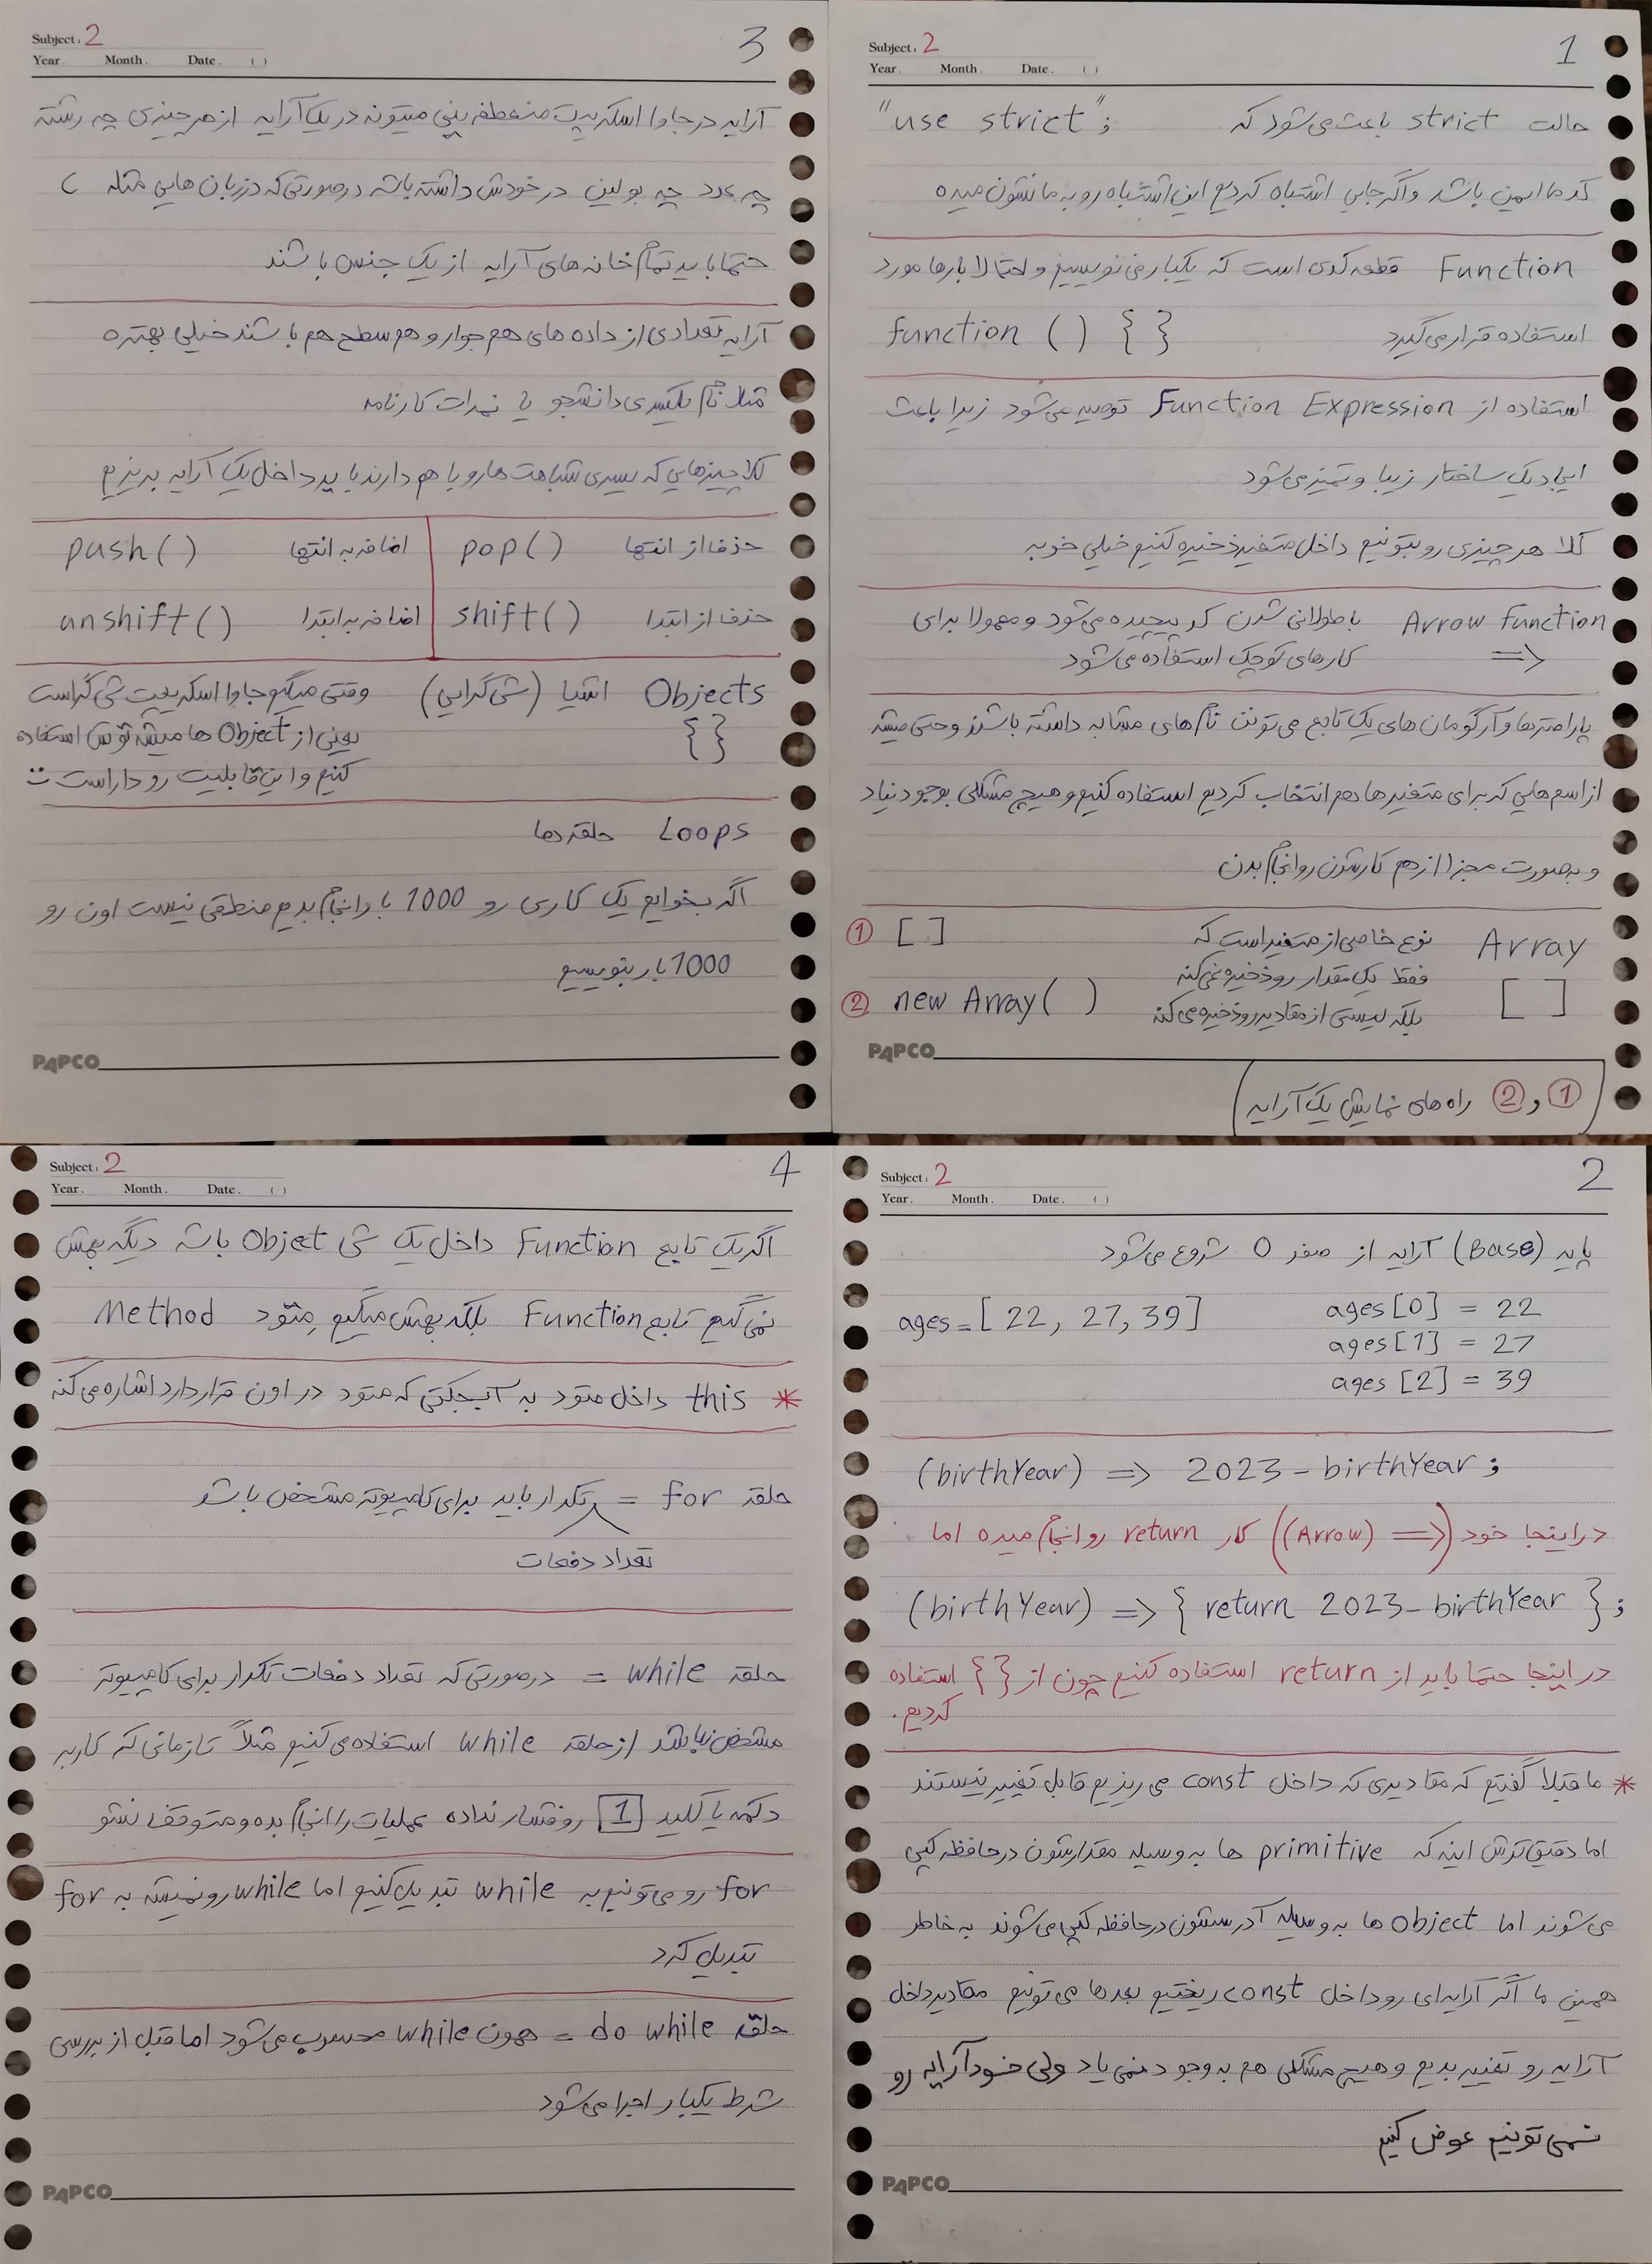 Subject: 2
1
Year. Month. Date. ( )
حالت strict باعث می‌شود که "use strict";
کد ما ایمن باشد و اگر جایی اشتباه کردیم این اشتباه رو به ما نشون میده
Function قطعه کدی است که یکبار می نویسیم و احتمالا بارها مورد
استفاده قرار می‌گیرد function ( ) { }
استفاده از Function Expression توصیه می‌شود زیرا باعث
ایجاد یک ساختار زیبا و تمیز می‌شود
کلا هر چیزی رو بتونیم داخل متغیر ذخیره کنیم خیلی خوبه
Arrow Function با طولانی شدن کد پیچیده می‌شود و معمولا برای
=> کارهای کوچک استفاده می‌شود
پارامترها و آرگومان های یک تابع می‌تونن نام های مشابه داشته باشند و حتی میشه
از اسم هایی که برای متغیرها هم انتخاب کردیم استفاده کنیم و هیچ مشکلی بوجود نیاد
و بصورت مجزا از هم کارشون رو انجام بدن
Array نوع خاصی از متغیر است که ① [ ]
فقط یک مقدار رو ذخیره نمی‌کنه
[ ] بلکه لیستی از مقادیر رو ذخیره می‌کنه ② new Array( )
PAPCO
① و ② راه های نمایش یک آرایه
Subject: 2
2
Year. Month. Date. ( )
پایه (Base) آرایه از صفر 0 شروع می‌شود
ages = [ 22, 27, 39 ] ages[0] = 22
ages[1] = 27
ages [2] = 39
(birthYear) => 2023 - birthYear ;
در اینجا خود (=> (Arrow)) کار return رو انجام میده اما
(birthYear) => { return 2023 - birthYear } ;
در اینجا حتما باید از return استفاده کنیم چون از { } استفاده
کردیم.
* ما قبلا گفتیم که مقادیری که داخل const می ریزیم قابل تغییر نیستند
اما دقیق ترش اینه که primitive ها به وسیله مقدارشون در حافظه کپی
می‌شوند اما object ها به وسیله آدرسشون در حافظه کپی می‌شوند به خاطر
همین ما اگر آرایه‌ای رو داخل const ریختیم بعدها می تونیم مقادیر داخل
آرایه رو تغییر بدیم و هیچ مشکلی هم به وجود نمی یاد ولی خود آرایه رو
نمی تونیم عوض کنیم
PAPCO
Subject: 2
3
Year. Month. Date. ( )
آرایه در جاوا اسکریپت منعطفه یعنی میتونه در یک آرایه از هر چیزی چه رشته
چه عدد چه بولین در خودش داشته باشه درصورتی که در زبان هایی مثله C
حتما باید تمام خانه های آرایه از یک جنس باشند
آرایه تعدادی از داده های هم جوار و هم سطح هم باشند خیلی بهتره
مثلا نام یکسری دانشجو یا نمرات کارنامه
کلا چیزهایی که یسری شباهت ها رو با هم دارند باید داخل یک آرایه بریزیم
حذف از انتها pop( ) اضافه به انتها push( )
حذف از ابتدا shift( ) اضافه به ابتدا unshift( )
Objects اشیا (شی گرایی) وقتی میگیم جاوا اسکریپت شی گراست
{ } یعنی از Object ها میشه توش استفاده
کنیم و این قابلیت رو داراست
Loops حلقه ها
اگه بخوایم یک کاری رو 1000 بار انجام بدیم منطقی نیست اون رو
1000 بار بنویسیم
PAPCO
Subject: 2
4
Year. Month. Date. ( )
اگر یک تابع Function داخل یک شی Objet باشه دیگه بهش
نمی گیم تابع Function بلکه بهش میگیم مِتُود Method
* this داخل متود به آبجکتی که متود در اون قرار دارد اشاره می‌کنه
حلقه for = تکرار باید برای کامپیوتر مشخص باشد
تعداد دفعات
حلقه while = درصورتی که تعداد دفعات تکرار برای کامپیوتر
مشخص نباشد از حلقه while استفاده می کنیم مثلاً تا زمانی که کاربر
دکمه یا کلید 1 رو فشار نداده عملیات را انجام بده و متوقف نشو
for رو می تونیم به while تبدیل کنیم اما while رو نمیشه به for
تبدیل کرد
حلقه do while = همون while محسوب می‌شود اما قبل از بررسی
شرط یکبار اجرا می‌شود
PAPCO